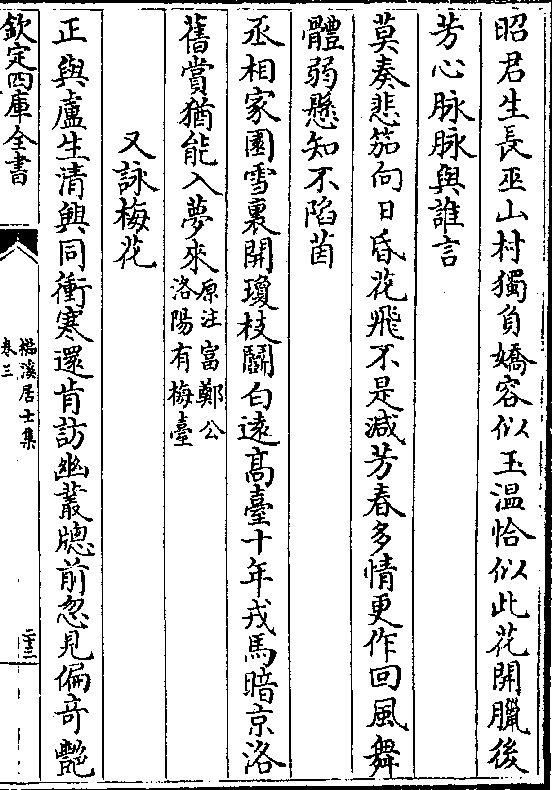 昭君生長巫山村獨負嬌容似玉溫恰似此花開臘後
芳心脉脉與誰言
莫奏悲笳向日昏花飛不是減芳春多情更作回風舞
體弱懸知不陷茵
丞相家園雪裏開瓊枝鬬白遶高臺十年戎馬暗京洛
舊賞猶能入夢來原注富鄭公洛陽有梅臺
又詠梅花
正與盧生清興同衝寒還肯訪幽叢牕前忽見偏奇艷
欽定四庫全書
卷三
溪居士集
二十三